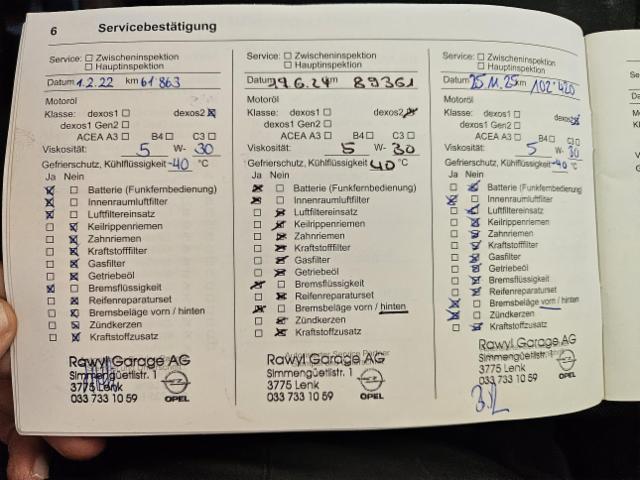 6 Servicebestätigung
Service: ☐ Zwischeninspektion
☐ Hauptinspektion
Datum 1.2.22 km 61'863
Motoröl
Klasse: dexos1 ☐ dexos2 ☒
dexos1 Gen2 ☐
ACEA A3 ☐ B4 ☐ C3 ☐
Viskosität: 5 W- 30
Gefrierschutz, Kühlflüssigkeit -40 °C
Ja Nein
☒ ☐ Batterie (Funkfernbedienung)
☒ ☐ Innenraumluftfilter
☒ ☐ Luftfiltereinsatz
☐ ☒ Keilrippenriemen
☐ ☒ Zahnriemen
☐ ☒ Kraftstofffilter
☐ ☒ Gasfilter
☐ ☒ Getriebeöl
☒ ☐ Bremsflüssigkeit
☐ ☒ Reifenreparaturset
☐ ☒ Bremsbeläge vorn / hinten
☐ ☒ Zündkerzen
☐ ☒ Kraftstoffzusatz
Rawyl Garage AG
Simmengüetlistr. 1
3775 Lenk
033 733 10 59 OPEL
Service: ☐ Zwischeninspektion
☐ Hauptinspektion
Datum 6.24 km 89361
Motoröl
Klasse: dexos1 ☐ dexos2 ☒
dexos1 Gen2 ☐
ACEA A3 ☐ B4 ☐ C3 ☐
Viskosität: 5 W- 30
Gefrierschutz, Kühlflüssigkeit 40 °C
Ja Nein
☒ ☐ Batterie (Funkfernbedienung)
☒ ☐ Innenraumluftfilter
☐ ☒ Luftfiltereinsatz
☐ ☒ Keilrippenriemen
☐ ☒ Zahnriemen
☐ ☒ Kraftstofffilter
☐ ☒ Gasfilter
☐ ☒ Getriebeöl
☒ ☐ Bremsflüssigkeit
☐ ☒ Reifenreparaturset
☒ ☐ Bremsbeläge vorn / hinten
☐ ☒ Zündkerzen
☐ ☒ Kraftstoffzusatz
Rawyl Garage AG
Simmengüetlistr. 1
3775 Lenk
033 733 10 59 OPEL
Service: ☐ Zwischeninspektion
☐ Hauptinspektion
Datum 25.11.25 km 102'420
Motoröl
Klasse: dexos1 ☐ dexos2 ☒
dexos1 Gen2 ☐
ACEA A3 ☐ B4 ☐ C3 ☐
Viskosität: 5 W- 30
Gefrierschutz, Kühlflüssigkeit -40 °C
Ja Nein
☐ ☒ Batterie (Funkfernbedienung)
☒ ☐ Innenraumluftfilter
☐ ☒ Luftfiltereinsatz
☐ ☒ Keilrippenriemen
☐ ☒ Zahnriemen
☐ ☒ Kraftstofffilter
☐ ☒ Gasfilter
☐ ☒ Getriebeöl
☐ ☒ Bremsflüssigkeit
☐ ☒ Reifenreparaturset
☒ ☐ Bremsbeläge vorn / hinten
☒ ☐ Zündkerzen
☐ ☒ Kraftstoffzusatz
Rawyl Garage AG
Simmengüetlistr. 1
3775 Lenk
033 733 10 59 OPEL